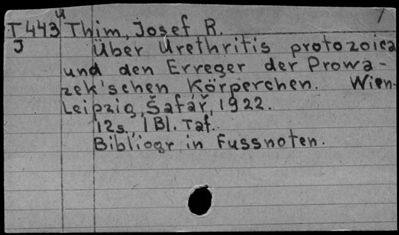 T443u Thim, Josef R. 1
J Über Urethritis protozoica
und den Erreger der Prowa-
zek'schen Körperchen. Wien-
Leipzig, Šafář, 1922.
12s., 1 Bl. Taf.
Bibliogr in Fussnoten.